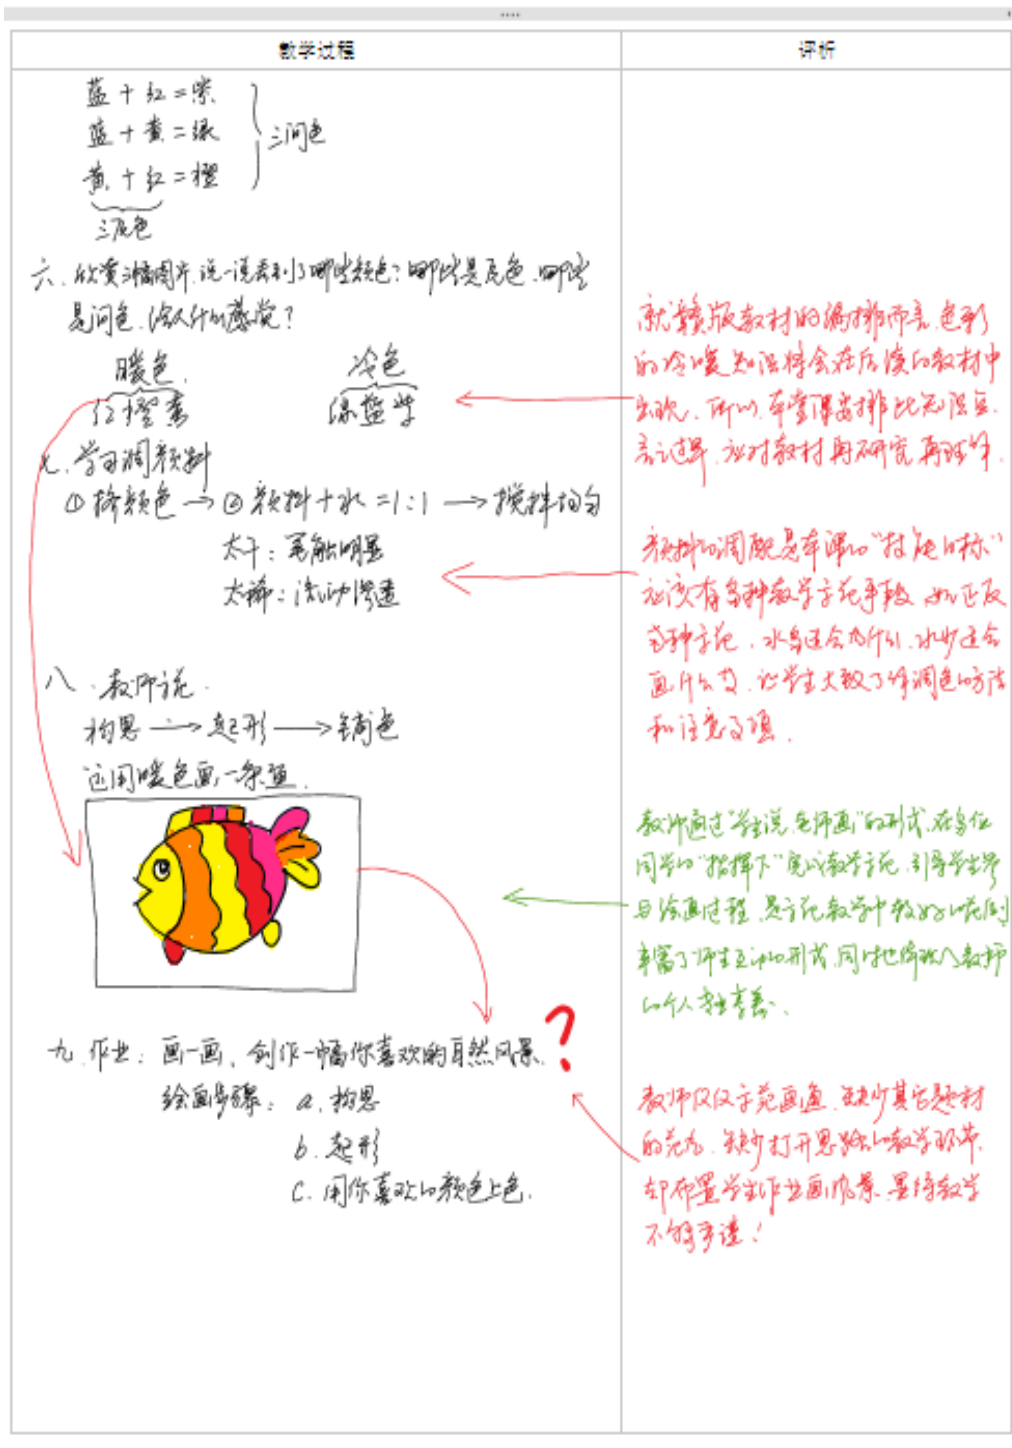 教学过程
评析
蓝+红=紫
蓝+黄=绿
黄+红=橙
三间色
三原色
六.欣赏三幅图片,说一说看到了哪些颜色?哪些是原色,哪些
是间色,给人什么感觉?
暖色
冷色
红橙黄
绿蓝紫
七.学习调颜料
①挤颜色→②颜料+水=1:1→搅拌均匀
太干:笔触明显
太稀:流动渗透
八.教师示范.
构思→起形→铺色
运用暖色画一条鱼.
九.作业:画一画,创作一幅你喜欢的自然风景.
绘画步骤:a.构思
b.起形
c.用你喜欢的颜色上色.
?
就赣版教材的编排而言,色彩
的冷暖知识将会在后续的教材中
出现.所以,本堂课安排此知识点
言之过早,应对教材再研究再理解.
颜料的调配是本课的“技能目标”
应该有多种教学示范手段,如正反
多种示范,水多还会为什么,水少还会
画什么等,让学生大致了解调色的方法
和注意事项.
教师通过“学生说,老师画”的形式,在多位
同学的“指挥下”完成教学示范,引导学生参
与绘画过程,是示范教学中较好的范例,
丰富了师生互动的形式,同时也体现了教师
的个人专业素养.
教师仅仅示范画鱼,缺少其它题材
的范画,缺少打开思路的教学环节,
却布置学生作业画风景,显得教学
不够严谨!